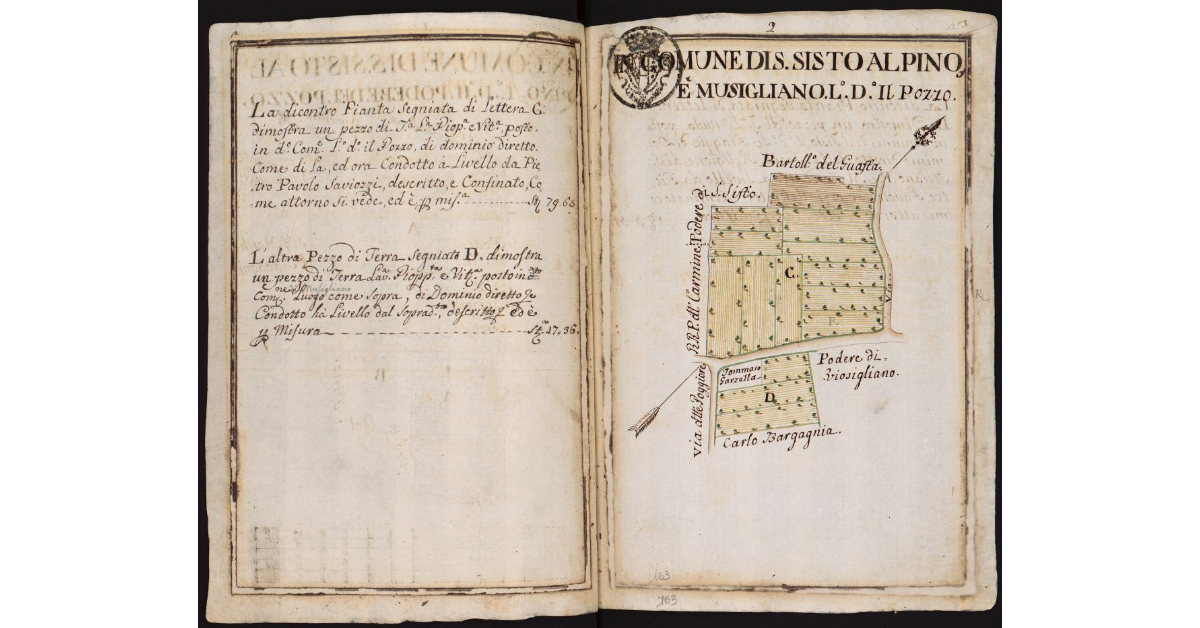 La dicontro Pianta Segniata di Lettera C.
dimostra un pezzo di T.ª L.ª Piop.ª e Vit.ª, posto
in d.º Com.e L.º d.º il Pozzo, di dominio diretto
Come di La, ed ora Condotto à Livello da Pie
tro Pavolo Saviozzi, descritto, e Confinato, Co
me attorno Si vede, ed è p mis.ª St. 79.65
L'altro Pezzo di Terra Segniato D. dimostra
un pezzo di Terra Lav.ª Piopp.ta e Vit.ª posto in
Com.e Luogo come Sopra, di Dominio diretto
Condotto hà Livello dal Soprad.to, descritto ed è
p Misura St. 27.36.
2
IN COMUNE DI S. SISTO AL PINO,
È MUSIGLIANO. L.º D.º Il Pozzo.
Bartoll.º del Guasta.
Podere di S. Sisto.
R.R.P. dl' Carmine
Via
C.
R.
Podere di
Viosigliano.
Tommaso
Garzella
D.
via dtte Poggiore
Carlo Bargagnia.
163
163